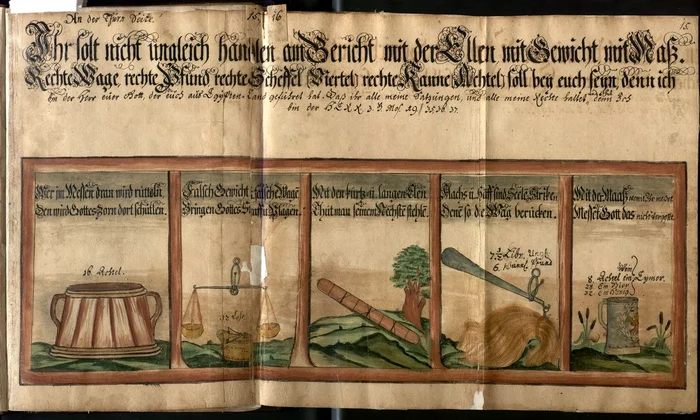 An der Thurn Seite.
15. 16
15
Ihr solt nicht ungleich handlen am Gericht mit der Ellen mit Gewicht mit Maß.
Rechte Wage, rechte Pfund rechte Scheffel Viertel, rechte Kanne Achtel, soll bey euch seyn, denn ich
bin der Herr euer Gott, der euch aus Egypten-Land geführet hat. Daß ihr alle meine Satzungen, und alle meine Rechte haltet, denn Ich
bin der HERR 3. B. Mos. 19/35.36.37.
Wer im Messen dran wird rütteln
Den wird Gottes Zorn dort schütlen.
16 Achtel.
Falsch Gewicht, falsche Wage
Bringen Gottes Straff u. Plagen.
Mit den kurtz u. langen Elen
Thut man seinem Nechste stehle.
Flachs u. Hanff sind
so die Wag berücken.
6.
Mit der Maaß
Messet Gott das
8 Achtel ein Eymer.